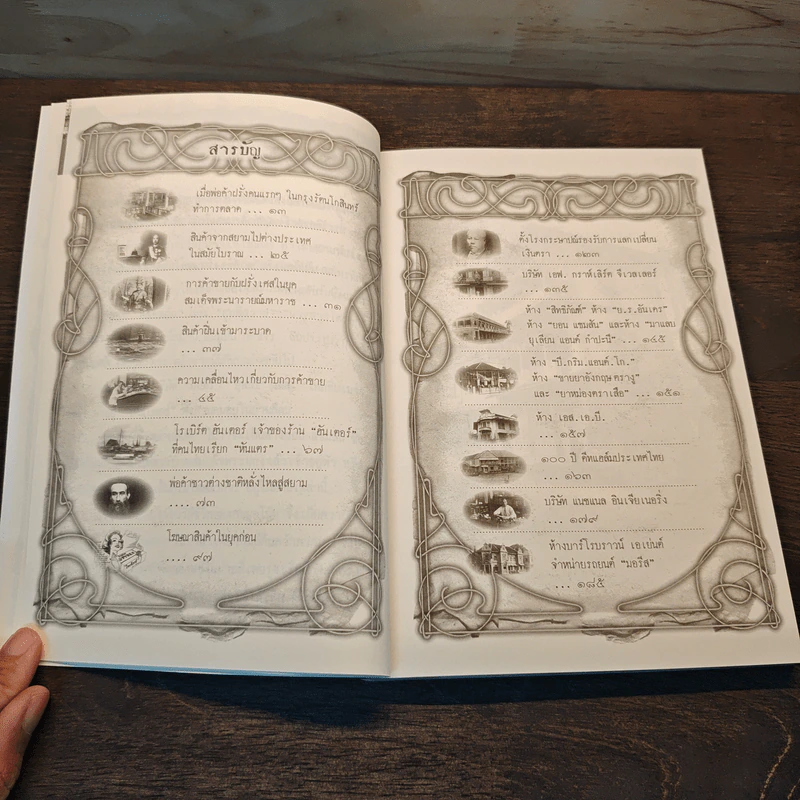 สารบัญ
เมื่อพ่อค้าฝรั่งคนแรกๆ ในกรุงรัตนโกสินทร์
ทำการตลาด ... ๑๓
สินค้าจากสยามไปต่างประเทศ
ในสมัยโบราณ ... ๒๕
การค้าขายกับฝรั่งเศสในยุค
สมเด็จพระนารายณ์มหาราช ... ๓๑
สินค้าฝิ่นเข้ามาระบาด
... ๓๗
ความเคลื่อนไหวเกี่ยวกับการค้าขาย
... ๔๕
โรเบิร์ต ฮันเตอร์ เจ้าของร้าน "ฮันเตอร์"
ที่คนไทยเรียก "หันแตร" ... ๖๗
พ่อค้าชาวต่างชาติหลั่งไหลสู่สยาม
.... ๗๓
โฆษณาสินค้าในยุคก่อน
.... ๙๗
ตั้งโรงกระษาปณ์รองรับการแลกเปลี่ยน
เงินตรา ... ๑๒๓
บริษัท เอฟ. กราห์เลิร์ต จิวเวลเลอร์
... ๑๓๕
ห้าง "สิทธิภัณฑ์" ห้าง "บ.ร.อันเดร"
ห้าง "ยอน แซมสัน" และห้าง "มาแลบ
ยุเลียน แอนด์ กำปะนี" ... ๑๔๕
ห้าง "บี.กริม.แอนด์.โก."
ห้าง "ขายยาอังกฤษตรางู"
และ "ยาหม่องตราเสือ" ... ๑๕๑
ห้าง เอส.เอ.บี.
... ๑๕๗
๑๐๐ ปี คีทแอล์มประเทศไทย
... ๑๖๓
บริษัท แนชแนล อินเจียเนอริ่ง
... ๑๗๙
ห้างบาร์โรบราวน์ เอเย่นต์
จำหน่ายรถยนต์ "มอริส"
... ๑๘๕